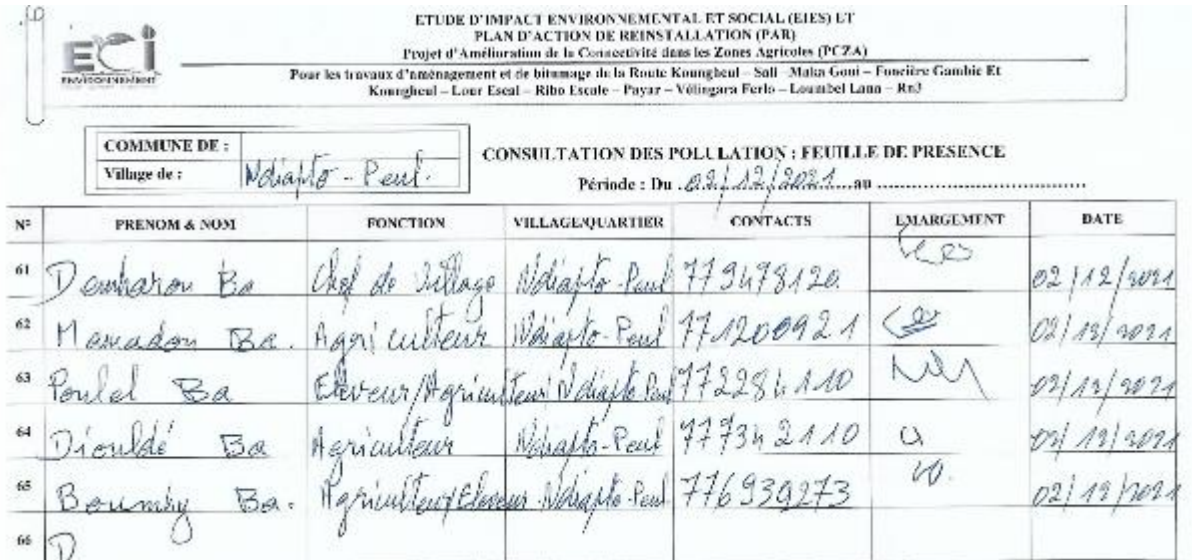 ETUDE D'IMPACT ENVIRONNEMENTAL ET SOCIAL (EIES) ET
PLAN D'ACTION DE REINSTALLATION (PAR)
Projet d'Amélioration de la Connectivité dans les Zones Agricoles (PCZA)
ECI
ENVIRONNEMENT
Pour les travaux d'aménagement et de bitumage de la Route Koungheul – Sali – Maka Goui – Foncière Gambie Et
Koungheul – Lour Escal – Ribo Escale – Payar – Vélingara Ferlo – Loumbel Lana – Rn3
COMMUNE DE :
Village de : Ndiapto - Peul.
CONSULTATION DES POLULATION : FEUILLE DE PRESENCE
Période : Du 02/12/2021 au
N° PRENOM & NOM FONCTION VILLAGE/QUARTIER CONTACTS EMARGEMENT DATE
61 Demharou Ba Chef de Village Ndiapto-Peul 779478120 02/12/2021
62 Mamadou Ba. Agriculteur Ndiapto-Peul 771200921 02/12/2021
63 Poulel Ba Eleveur/Agriculteur Ndiapto Peul 772284110 02/12/2021
64 Diouldé Ba Agriculteur Ndiapto-Peul 777342110 02/12/2021
65 Boumby Ba. Agriculteur/Eleveur Ndiapto-Peul 776939273 02/12/2021
66 D